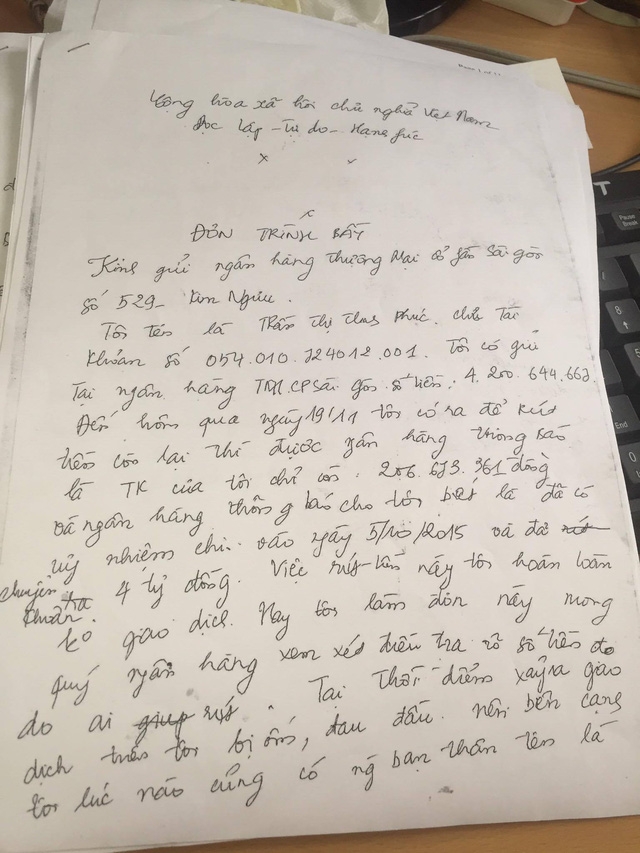 Cộng hòa xã hôi chủ nghĩa Việt Nam
Độc lập - Tự do - Hạnh fúc
ĐƠN TRÌNH BẦY
Kính gửi ngân hàng thương Mại cổ fần Sài gòn
số 529 - Kim Ngưu.
Tôi tên là Trần Thị Thanh Phúc. chủ Tài
Khoản số 054.010.724012.001. Tôi có gửi
Tại ngân hàng TM.CP Sài gòn số tiền: 4.200.644.663.
Đến hôm qua ngày 19/11 tôi có ra để rút
tiền còn lại thì được ngân hàng thông báo
là TK của tôi chỉ còn: 206.673.361 đồng
và ngân hàng thông báo cho tôi biết là đã có
uỷ nhiệm chi vào ngày 5/10/2015 và đã rút
chuyển tra 4 tỷ đồng. Việc rút tiền này tôi hoàn toàn
khoản. ko giao dịch. Nay tôi làm đơn này mong
quý ngân hàng xem xét điều tra rõ số tiền đó
do ai giup rút. Tại Thời điểm xảy ra giao
dịch trên tôi bị ốm, đau đầu. nên bên cạnh
tôi lúc nào cũng có ng bạn thân tên là
Page 1 of
Pause
Break
8
5
End
0